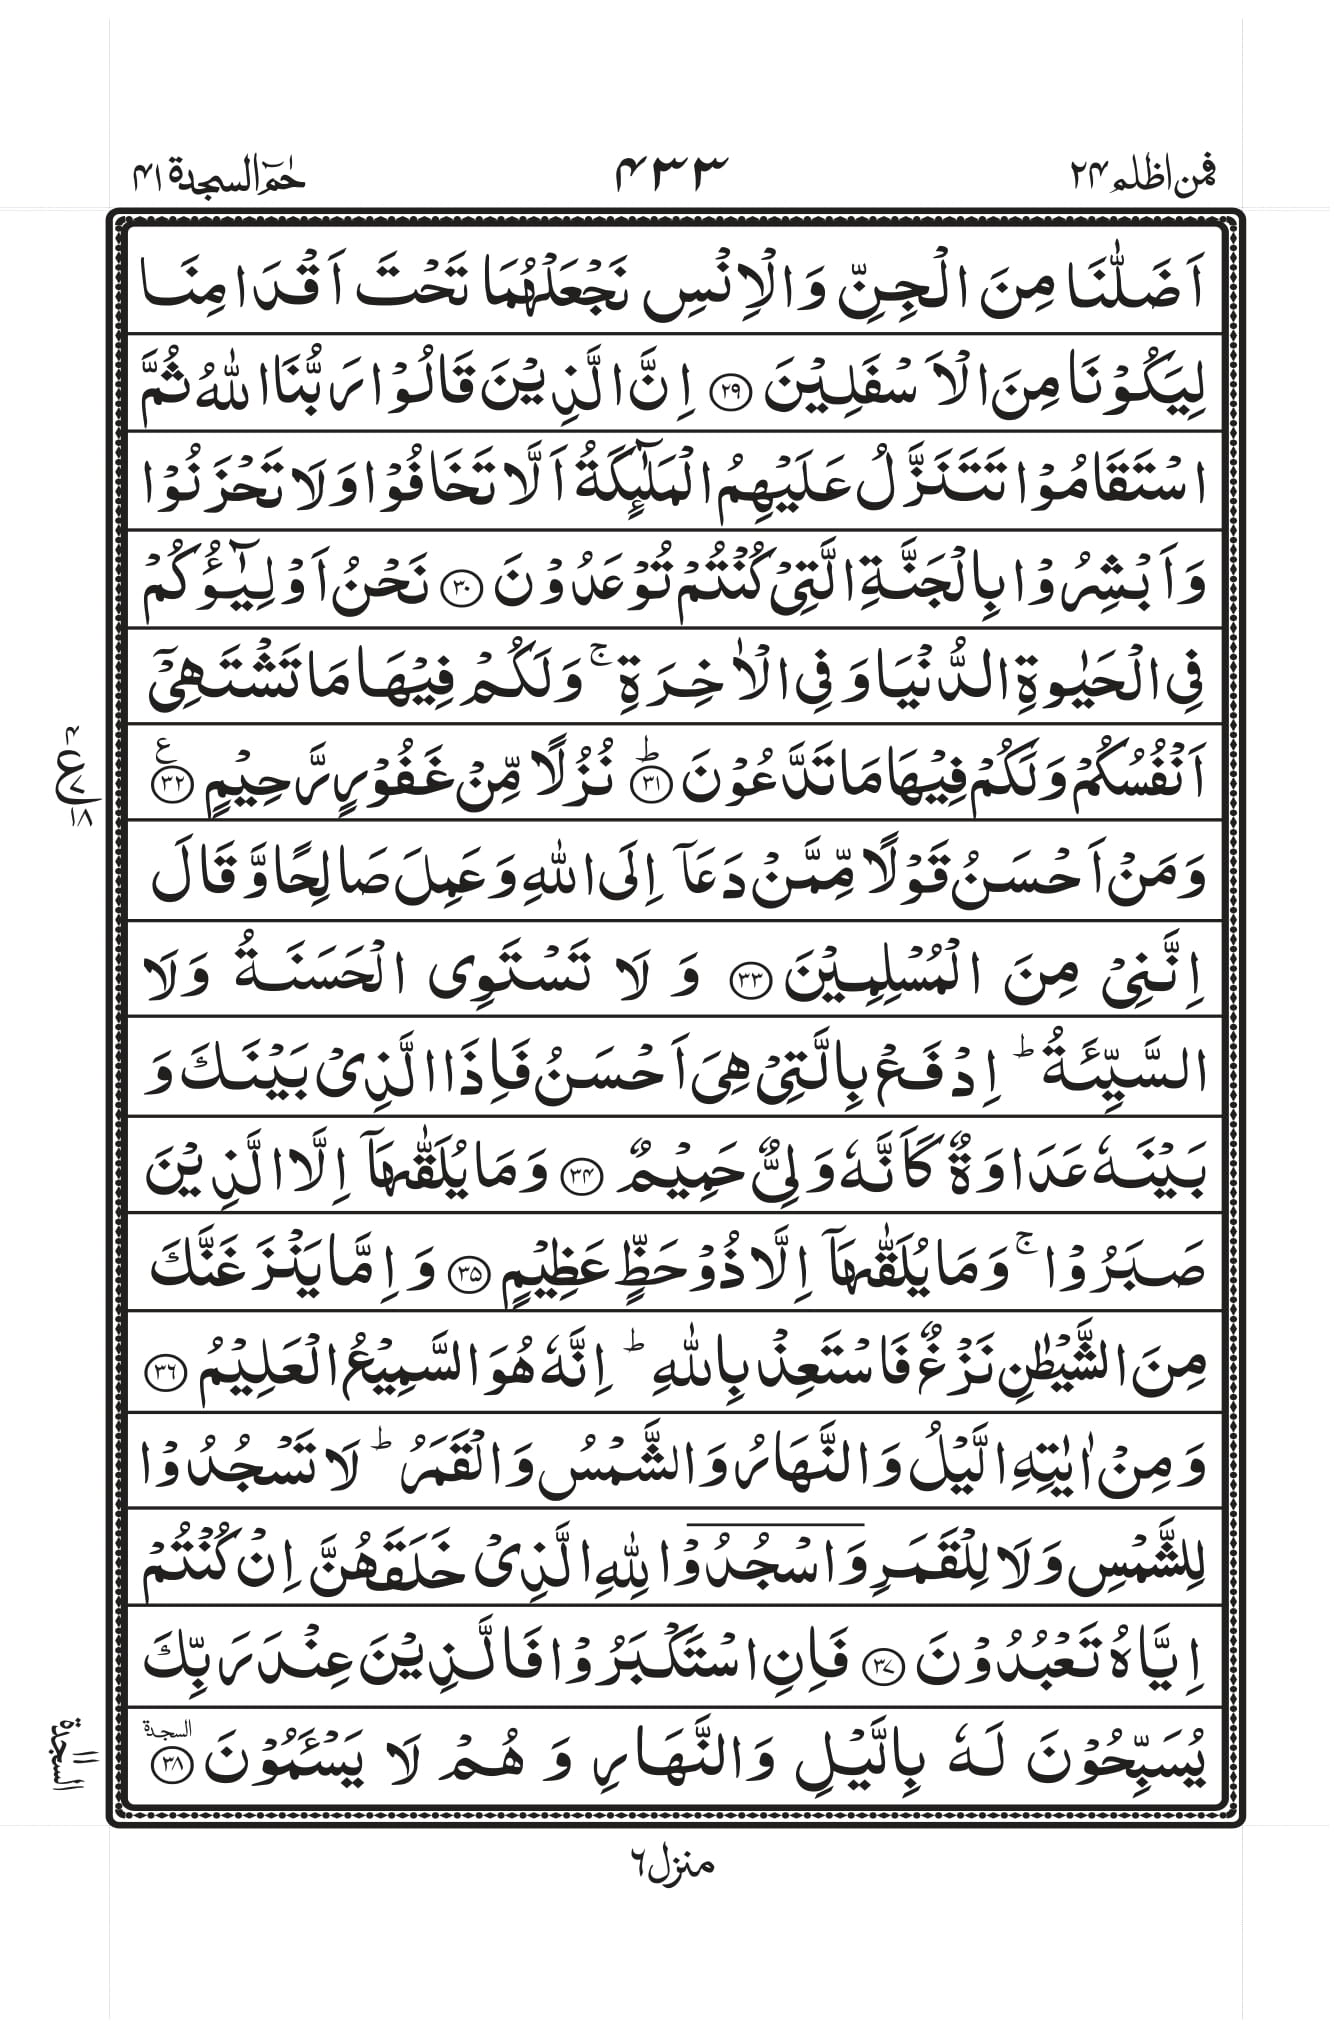 فمن اظلم ۲۴
۴۳۳
حٰمٓ السجدة ۴۱
اَضَلّٰنَا مِنَ الْجِنِّ وَالْاِنْسِ نَجْعَلْهُمَا تَحْتَ اَقْدَامِنَا
لِيَكُوْنَا مِنَ الْاَسْفَلِيْنَ ﴿۲۹﴾ اِنَّ الَّذِيْنَ قَالُوْا رَبُّنَا اللّٰهُ ثُمَّ
اسْتَقَامُوْا تَتَنَزَّلُ عَلَيْهِمُ الْمَلٰٓئِكَةُ اَلَّا تَخَافُوْا وَلَا تَحْزَنُوْا
وَاَبْشِرُوْا بِالْجَنَّةِ الَّتِيْ كُنْتُمْ تُوْعَدُوْنَ ﴿۳۰﴾ نَحْنُ اَوْلِيٰٓؤُكُمْ
فِي الْحَيٰوةِ الدُّنْيَا وَفِي الْاٰخِرَةِ ۚ وَلَكُمْ فِيْهَا مَا تَشْتَهِيْٓ
اَنْفُسُكُمْ وَلَكُمْ فِيْهَا مَا تَدَّعُوْنَ ﴿۳۱﴾ ؕ نُزُلًا مِّنْ غَفُوْرٍ رَّحِيْمٍ ﴿۳۲﴾ ع
وَمَنْ اَحْسَنُ قَوْلًا مِّمَّنْ دَعَآ اِلَى اللّٰهِ وَعَمِلَ صَالِحًا وَّقَالَ
اِنَّنِيْ مِنَ الْمُسْلِمِيْنَ ﴿۳۳﴾ وَلَا تَسْتَوِي الْحَسَنَةُ وَلَا
السَّيِّئَةُ ؕ اِدْفَعْ بِالَّتِيْ هِيَ اَحْسَنُ فَاِذَا الَّذِيْ بَيْنَكَ وَ
بَيْنَهٗ عَدَاوَةٌ كَاَنَّهٗ وَلِيٌّ حَمِيْمٌ ﴿۳۴﴾ وَمَا يُلَقّٰىهَآ اِلَّا الَّذِيْنَ
صَبَرُوْا ۚ وَمَا يُلَقّٰىهَآ اِلَّا ذُوْ حَظٍّ عَظِيْمٍ ﴿۳۵﴾ وَاِمَّا يَنْزَغَنَّكَ
مِنَ الشَّيْطٰنِ نَزْغٌ فَاسْتَعِذْ بِاللّٰهِ ؕ اِنَّهٗ هُوَ السَّمِيْعُ الْعَلِيْمُ ﴿۳۶﴾
وَمِنْ اٰيٰتِهِ الَّيْلُ وَالنَّهَارُ وَالشَّمْسُ وَالْقَمَرُ ؕ لَا تَسْجُدُوْا
لِلشَّمْسِ وَلَا لِلْقَمَرِ وَاسْجُدُوْا لِلّٰهِ الَّذِيْ خَلَقَهُنَّ اِنْ كُنْتُمْ
اِيَّاهُ تَعْبُدُوْنَ ﴿۳۷﴾ فَاِنِ اسْتَكْبَرُوْا فَالَّذِيْنَ عِنْدَ رَبِّكَ
يُسَبِّحُوْنَ لَهٗ بِالَّيْلِ وَالنَّهَارِ وَهُمْ لَا يَسْئَمُوْنَ ﴿۳۸﴾ السجدة
۴
ع
۷
۱۸
السجدة ۱۱
منزل ۶